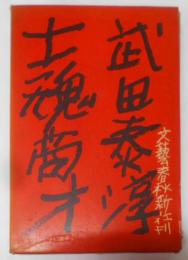 武田泰淳
士魂商才
文藝春秋新社刊